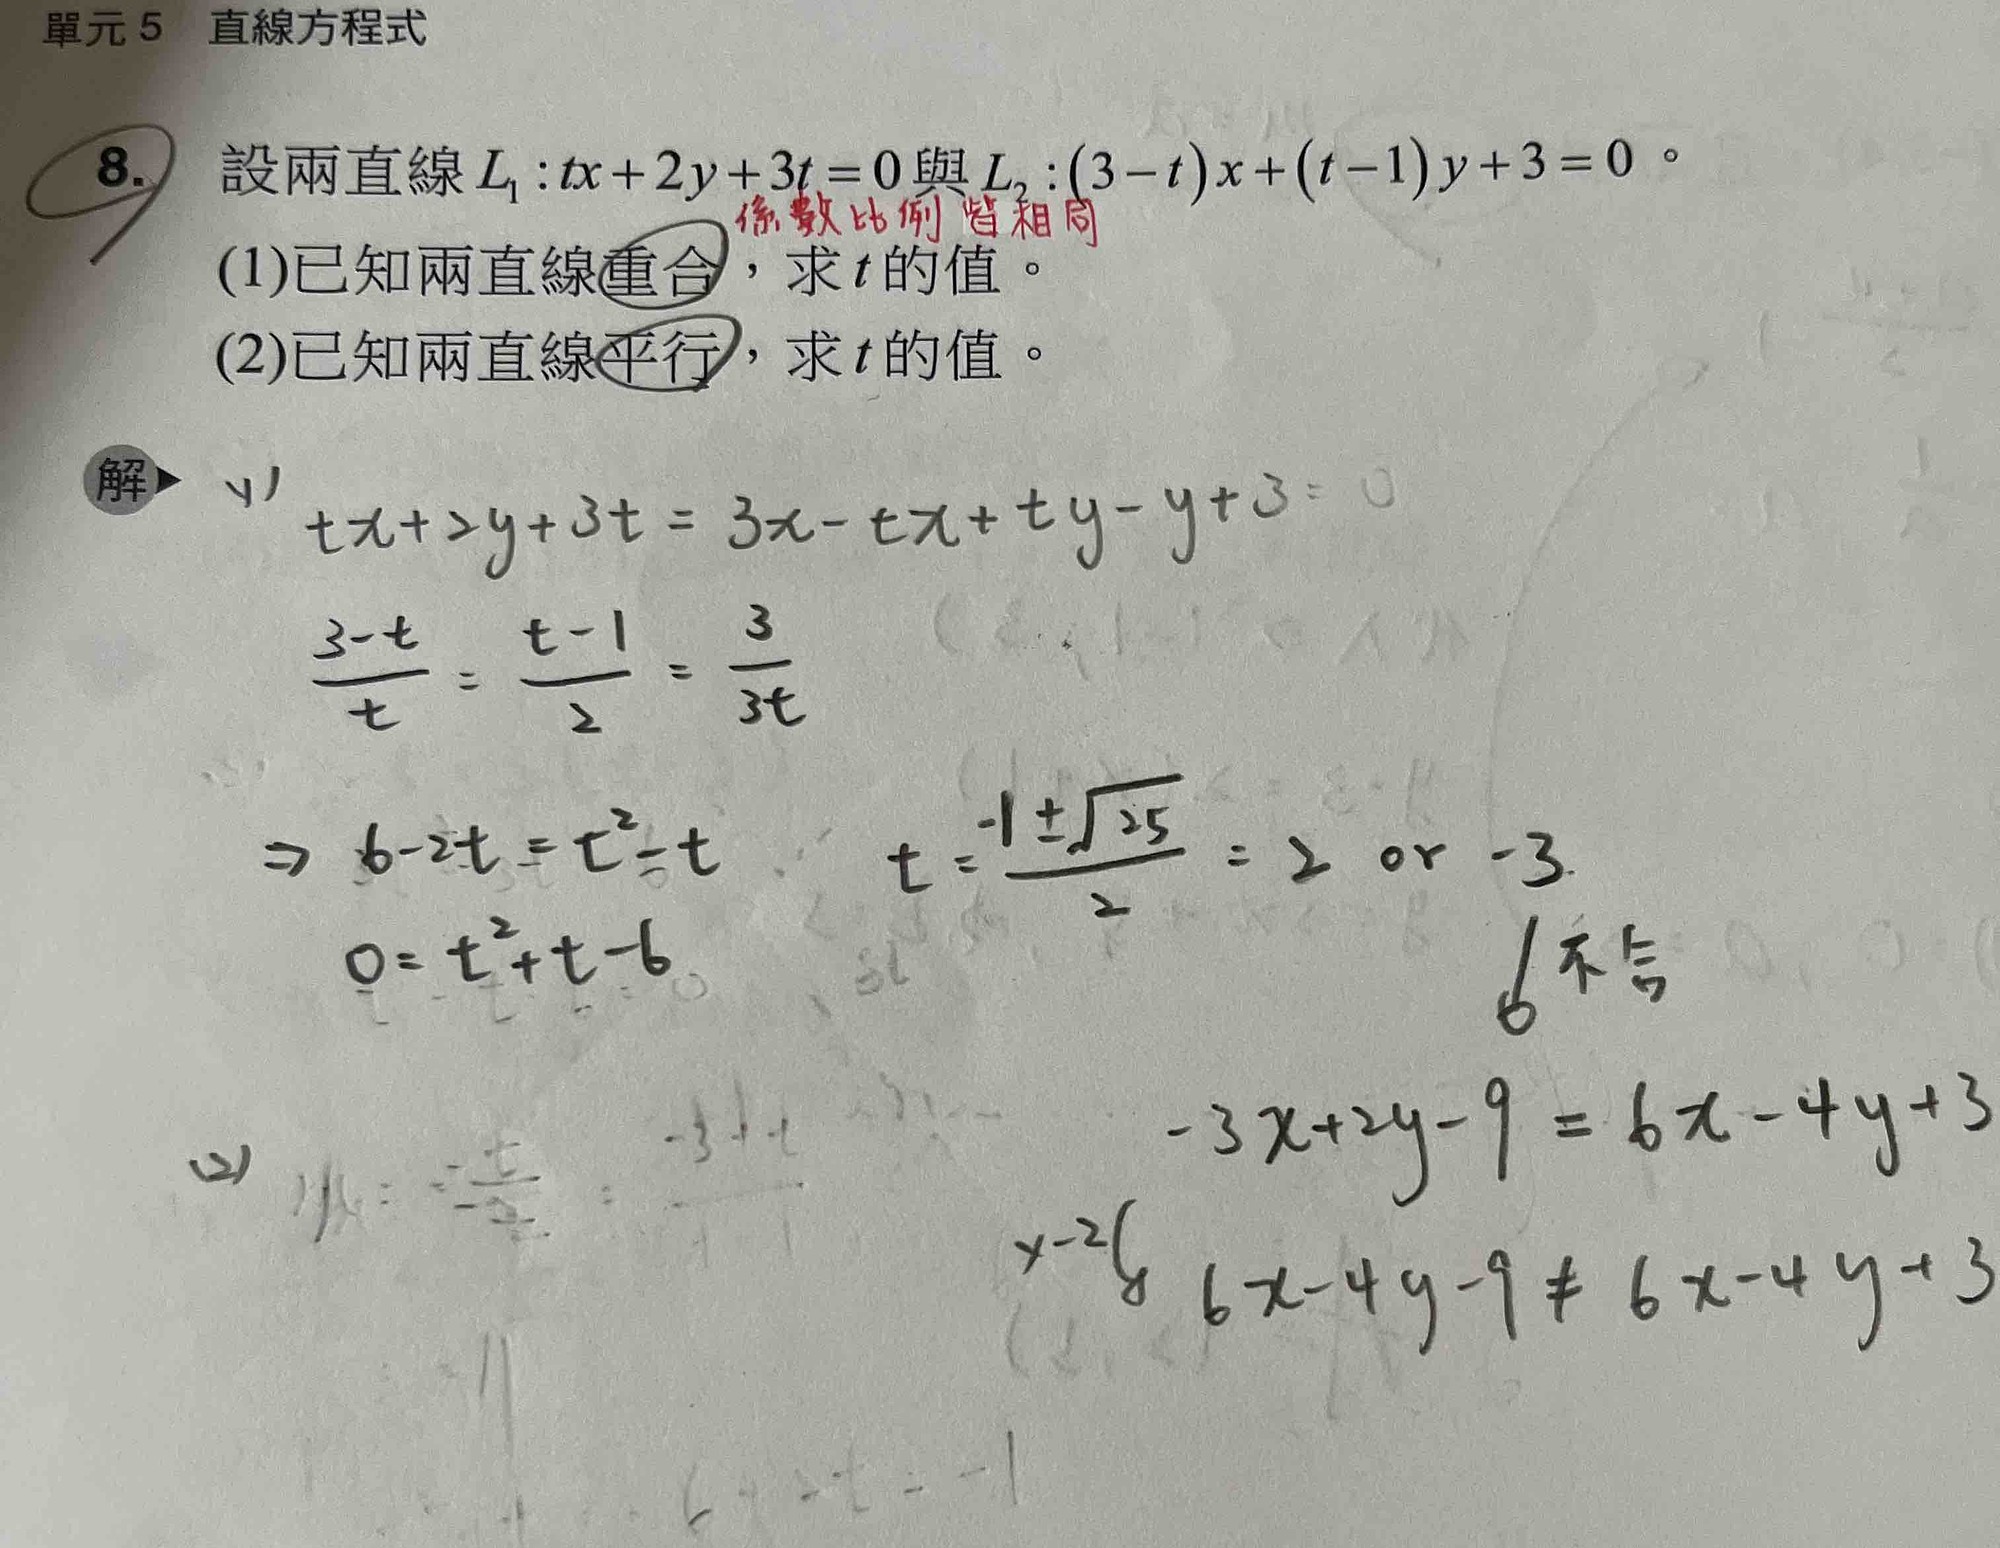 單元 5 直線方程式
8. 設兩直線 L₁ : tx + 2y + 3t = 0 與 L₂ : (3 − t)x + (t − 1)y + 3 = 0。
係數比例皆相同
(1)已知兩直線重合，求 t 的值。
(2)已知兩直線平行，求 t 的值。
解
(1)
tx + 2y + 3t = 3x − tx + ty − y + 3 = 0
(3−t)/t = (t−1)/2 = 3/(3t)
⇒ 6−2t = t²−t
t = (−1±√25)/2 = 2 or −3
0 = t²+t−6
不合
−3x+2y−9 = 6x−4y+3
(2)
×−2
6x−4y−9 ≠ 6x−4y+3